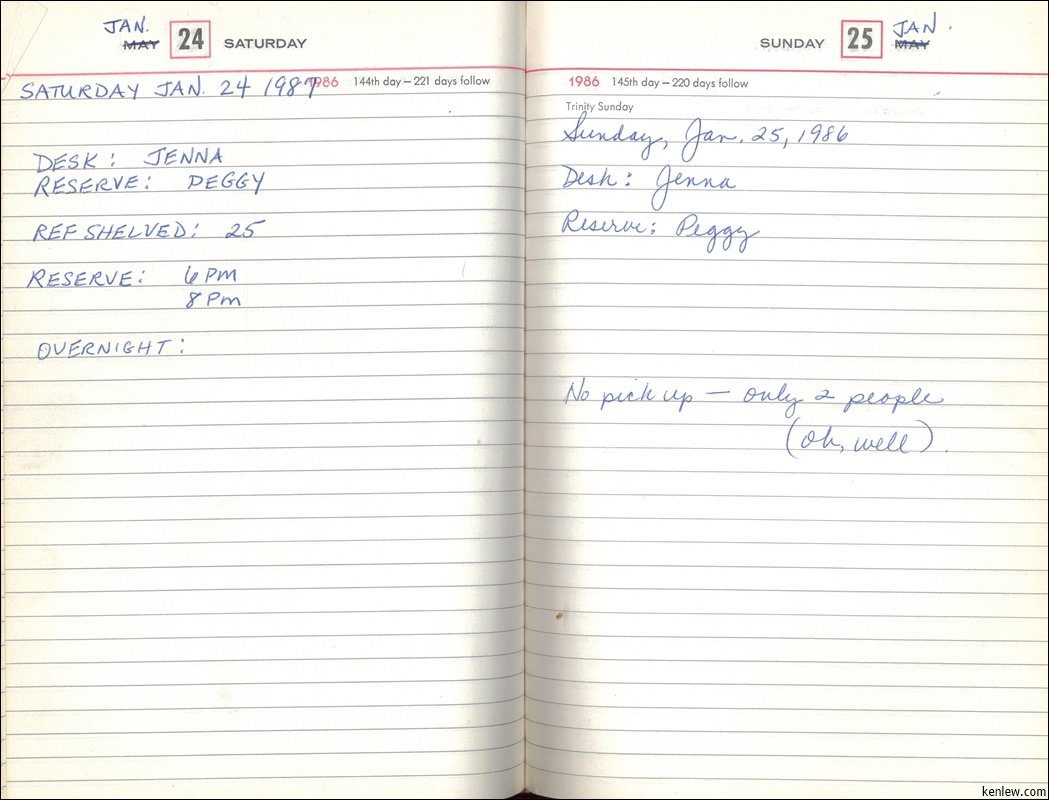 JAN.
MAY 24 SATURDAY
1986 144th day – 221 days follow
SATURDAY JAN. 24 1987
DESK: JENNA
RESERVE: PEGGY
REF SHELVED: 25
RESERVE: 6 PM
8 PM
OVERNIGHT:
JAN.
SUNDAY 25 MAY
1986 145th day – 220 days follow
Trinity Sunday
Sunday, Jan. 25, 1986
Desk: Jenna
Reserve: Peggy
No pick up — only 2 people
(oh, well).
kenlew.com